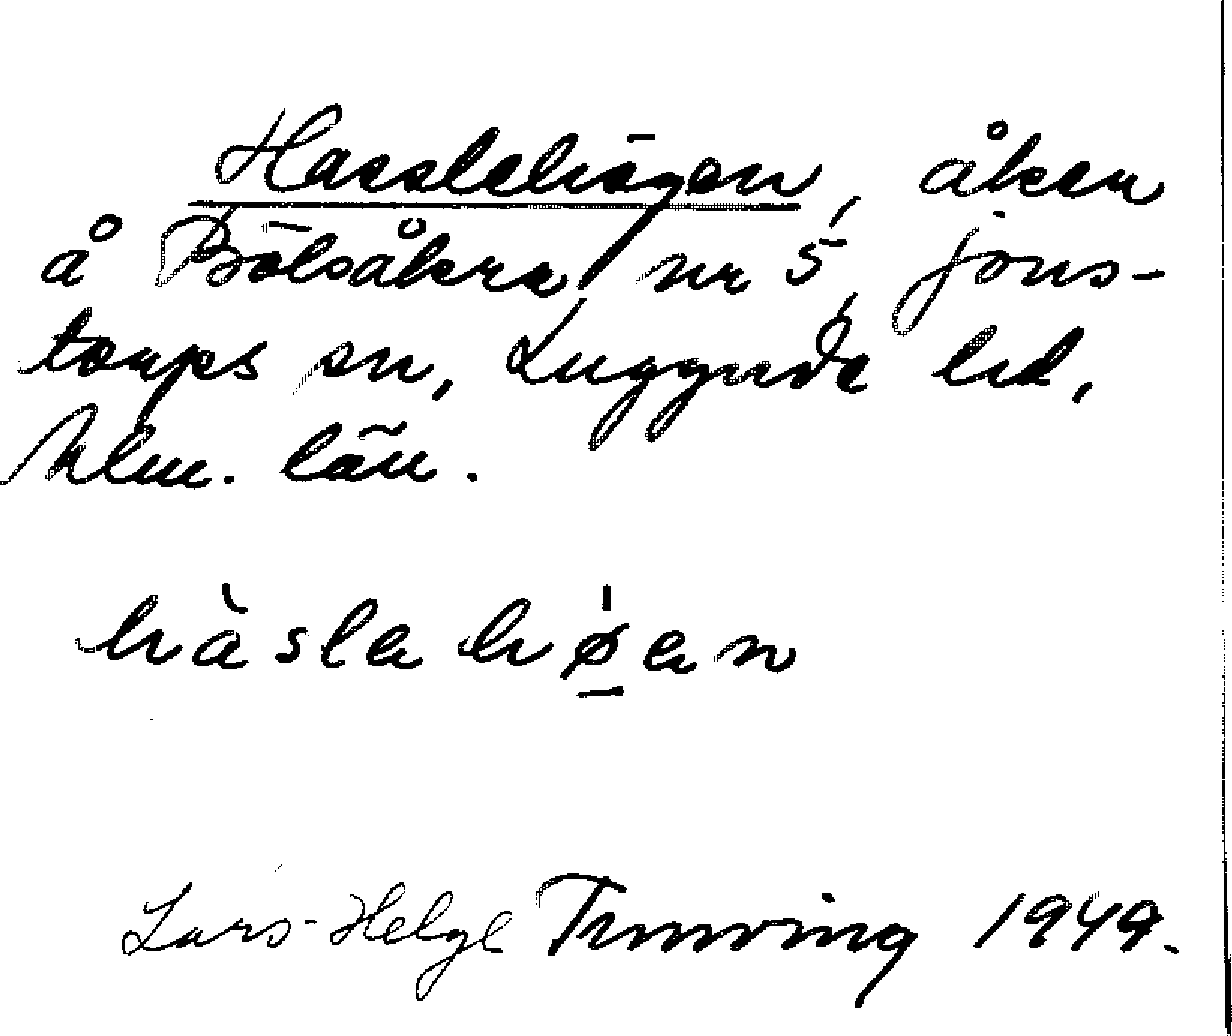 Hasslehögen, åker
å Bölsåkra nr 5, Jons-
torps sn, Luggude hd,
Mlm. län.
hàslehø̱en
Lars-Helge 1949.